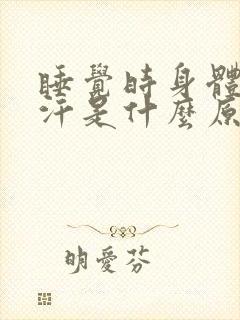 睡覺時身體
汗是什麼原
明愛芬